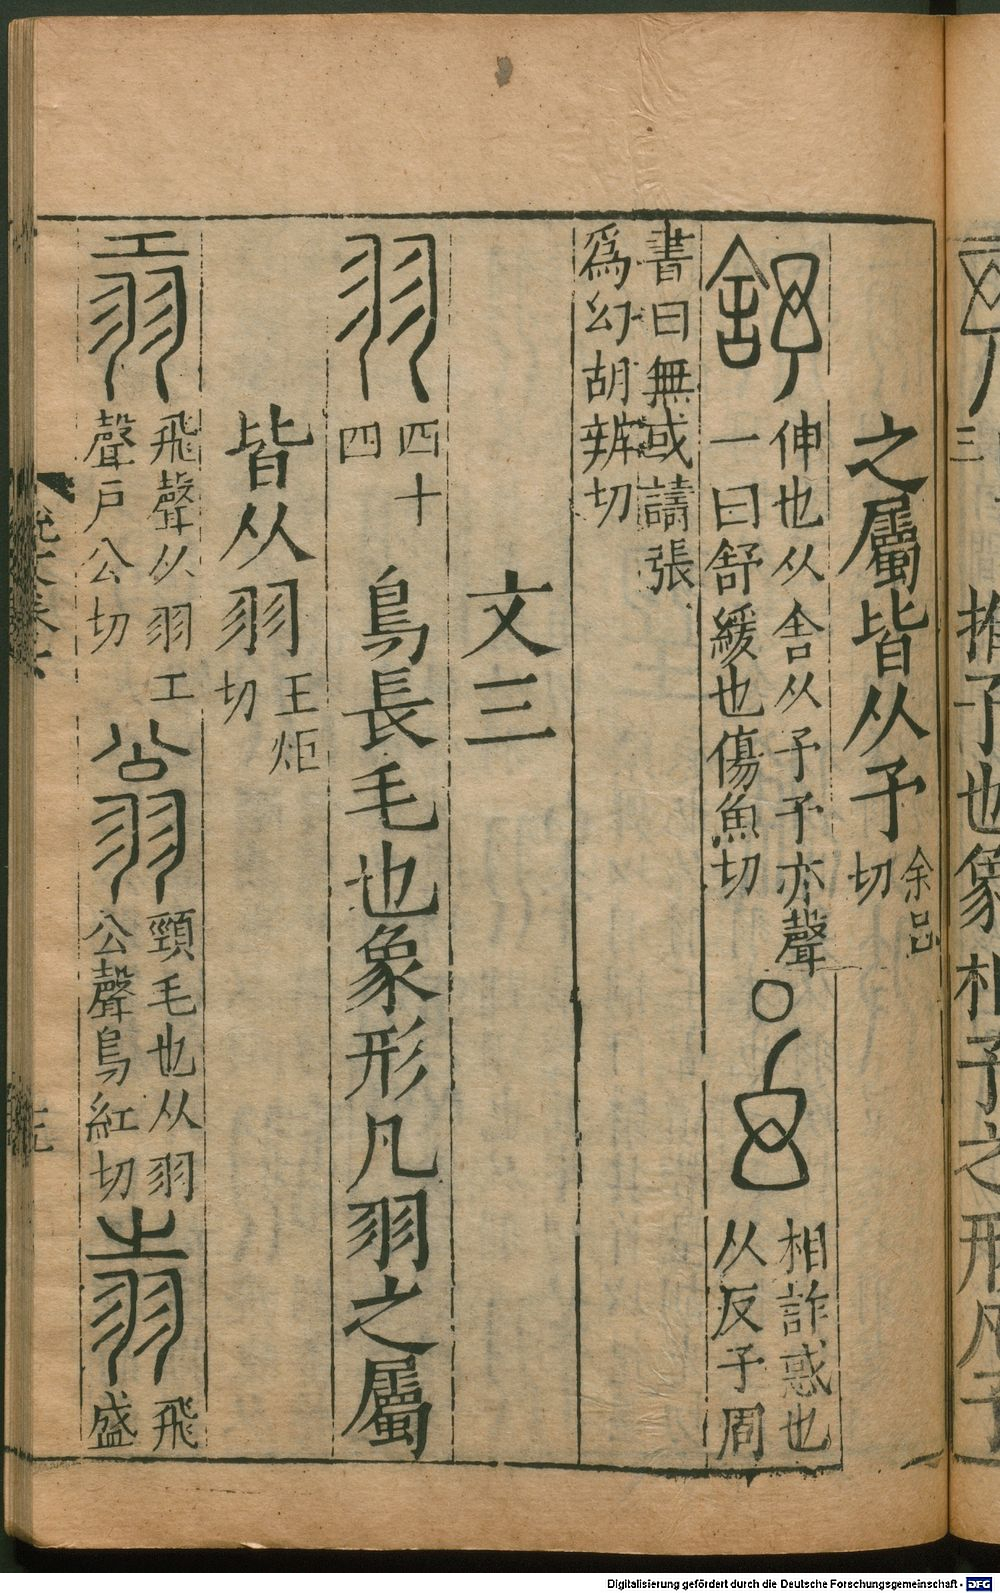 三
推予也象相予之形凡予
之屬皆从予余呂切
舒伸也从舍从予予亦聲一曰舒緩也傷魚切 幻相詐惑也从反予周
書曰無或譸張爲幻胡辨切
文三
羽四十四 鳥長毛也象形凡羽之屬
皆从羽王炬切
𦏺飛聲从羽工聲戶公切 翁頸毛也从羽公聲烏紅切 𦐂飛盛
Digitalisierung gefördert durch die Deutsche Forschungsgemeinschaft - DFG